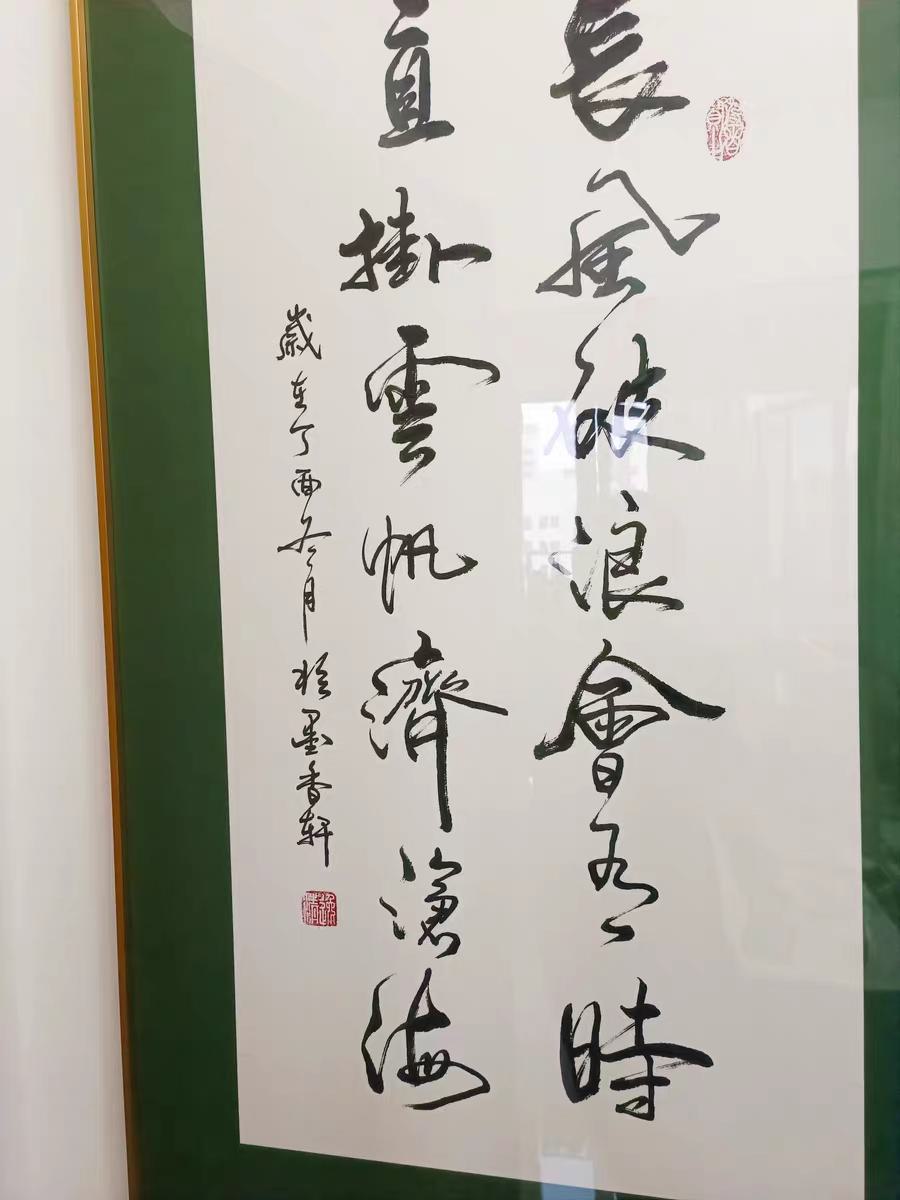 長風破浪會有時
直掛雲帆濟滄海
歲在丁酉冬月於墨香軒